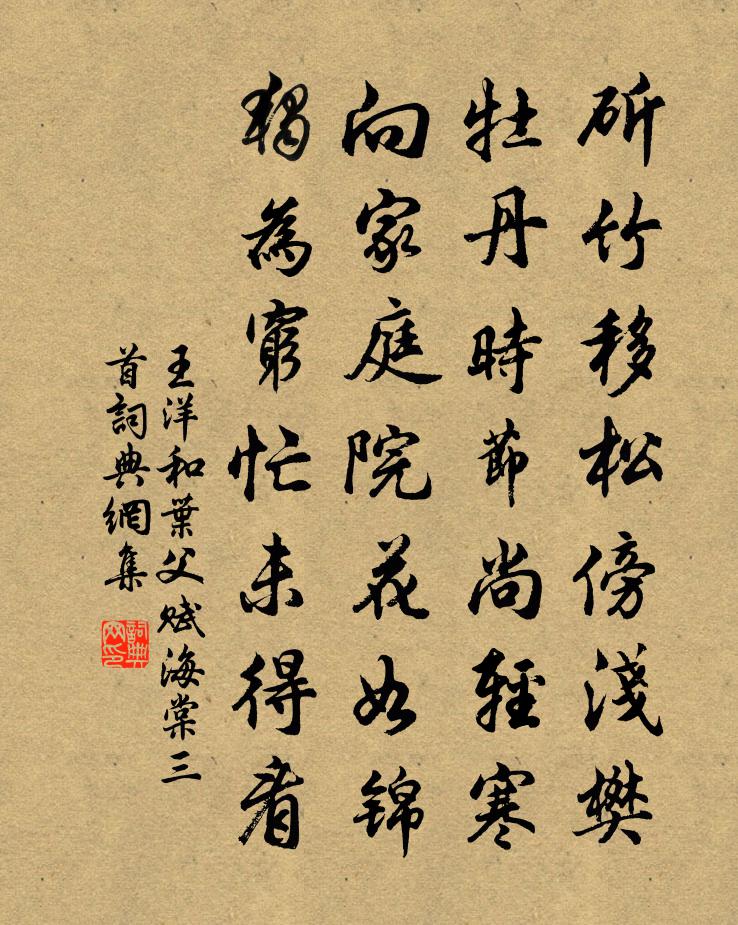 斫竹移松傍淺樊
牡丹時節尚輕寒
向家庭院花如錦
獨為窮忙未得看
王洋和葉父賦海棠三
首詞典網集
詞典
网印